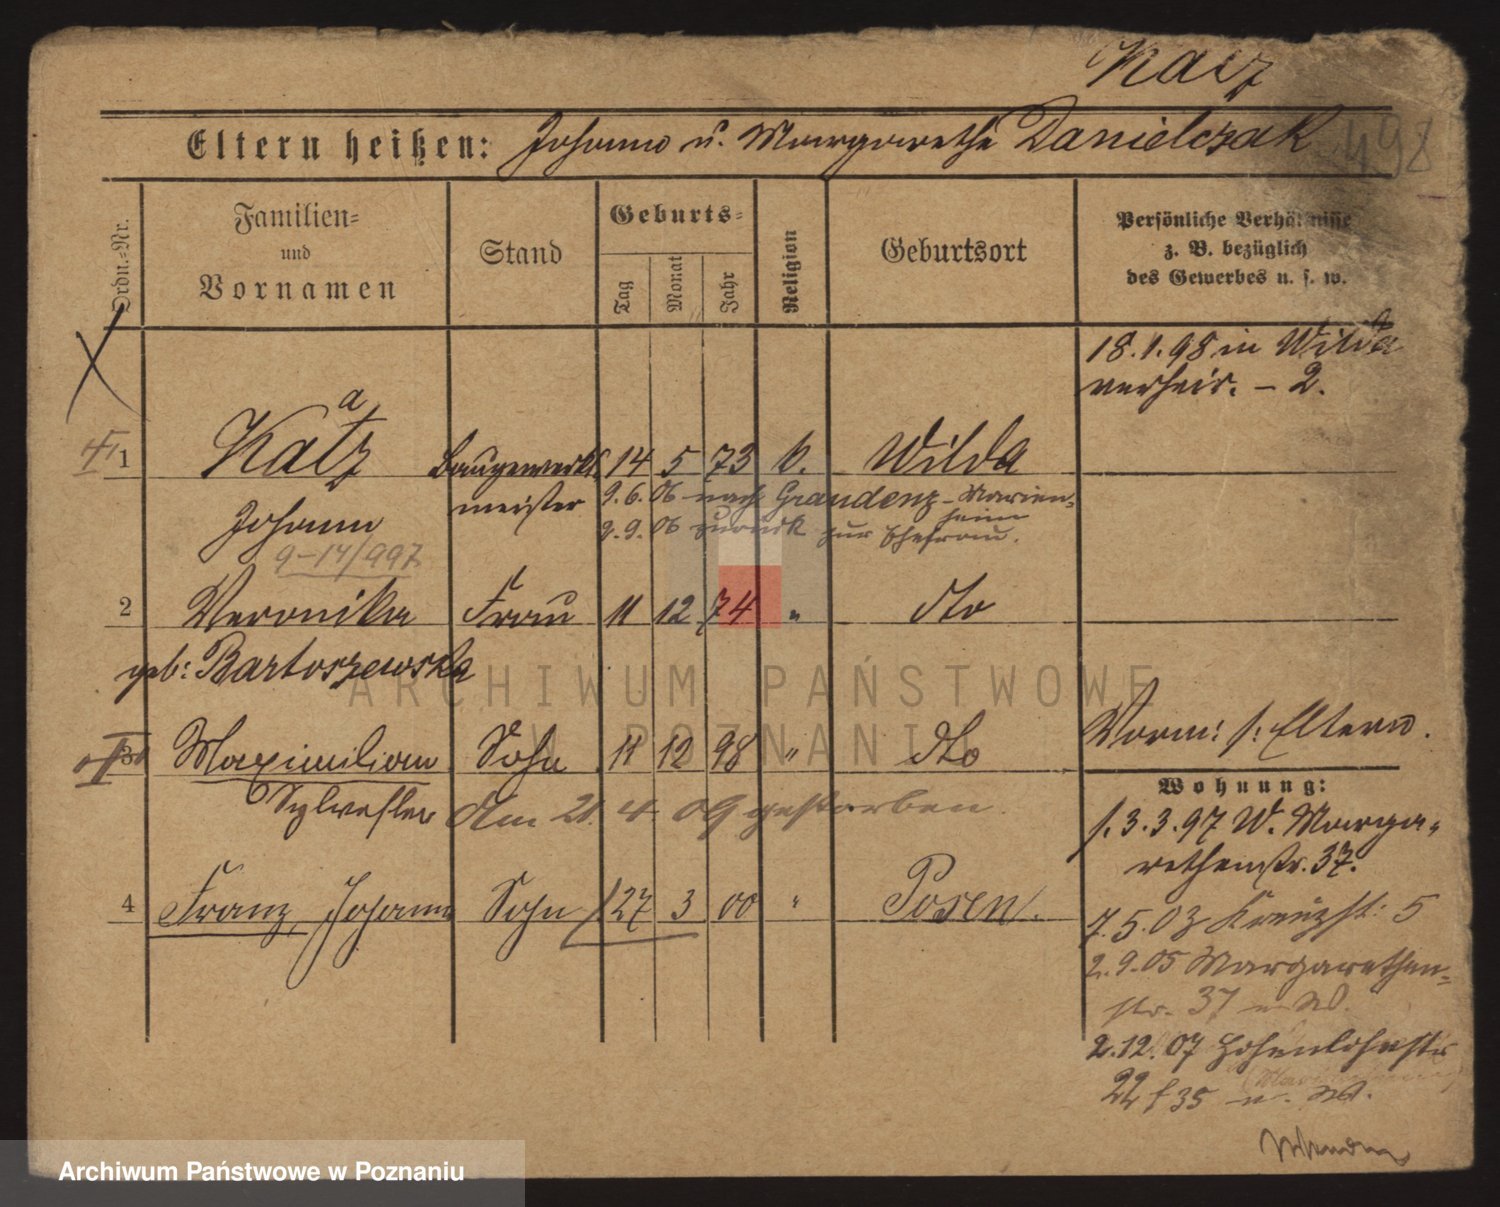 Katz
Eltern heißen: Johann u. Margarethe Danielczak 498
Ordn.-Nr.
Familien-
und
Vornamen
Stand
Geburts-
Tag
Monat
Jahr
Religion
Geburtsort
Persönliche Verhältnisse
z. B. bezüglich
des Gewerbes u. s. w.
18.1.98 in Wilda
verheir. – 2.
a
1 Katz Baugewerks 14 5 73 k. Wilda
meister
9.6.06 nach Graudenz – Marien-
heim
2.9.06 zurück zur Ehefrau.
Johann
9–14/997
2 Veronika Frau 11 12 74 " dto
geb: Bartoszewska
3 Maximilian Sohn 11 12 98 " dto
Sylvester
Am 21. 4 09 gestorben
Vorm: s: Eltern.
4 Franz, Johann Sohn 27 3 00 " Posen.
Wohnung:
1.3.3.97 W. Marga-
rethenstr. 37.
7.5.03 Kreuzst: 5
2.9.05 Margarethen-
str. 37 u. W.
2.12.07 Hohenlohestr
22 f 35 u. W.
ARCHIWUM PAŃSTWOWE
W POZNANIU
Archiwum Państwowe w Poznaniu